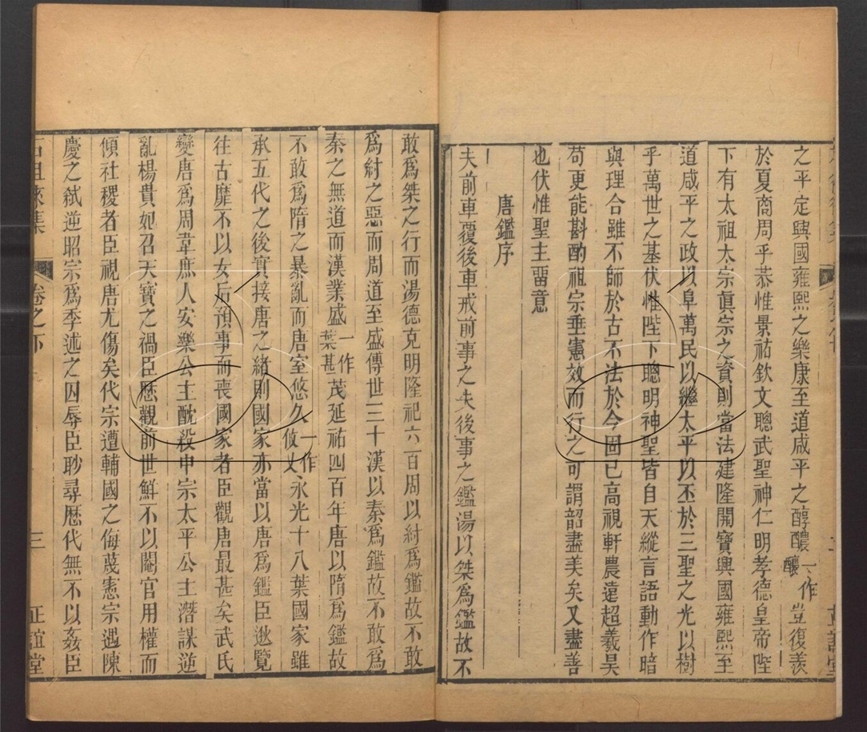 之平定興國雍熙之樂康至道咸平之醇醲一作醲豈復羨
於夏商周乎恭惟景祐欽文聰武聖神仁明孝德皇帝陛
下有太祖太宗真宗之資則當法建隆開寶興國雍熙至
道咸平之政以阜萬民以繼太平以丕於三聖之光以樹
乎萬世之基伏惟陛下聰明神聖皆自天縱言語動作暗
與理合雖不師於古不法於今固已高視軒農遠超羲昊
苟更能斟酌祖宗垂憲效而行之可謂韶盡美矣又盡善
也伏惟聖主畱意
唐鑑序
夫前車覆後車戒前事之失後事之鑑湯以桀爲鑑故不
敢爲桀之行而湯德克明隆祀六百周以紂爲鑑故不敢
爲紂之惡而周道至盛傳世三十漢以秦爲鑑故不敢爲
秦之無道而漢業盛一作葉甚茂延祐四百年唐以隋爲鑑故
不敢爲隋之暴亂而唐室悠久一作攸丈永光十八葉國家雖
承五代之後實接唐之緒則國家亦當以唐爲鑑臣逖覽
往古靡不以女后預事而喪國家者臣觀唐最甚矣武氏
變唐爲周韋庶人安樂公主酖殺中宗太平公主潛謀逆
亂楊貴妃召天寶之禍臣歷觀前世鮮不以閹官用權而
傾社稷者臣視唐尤傷矣代宗遭輔國之侮蔑憲宗遇陳
慶之弑逆昭宗爲季述之囚辱臣聊尋歷代無不以姦臣
石徂徠集 卷之下 三 正誼堂